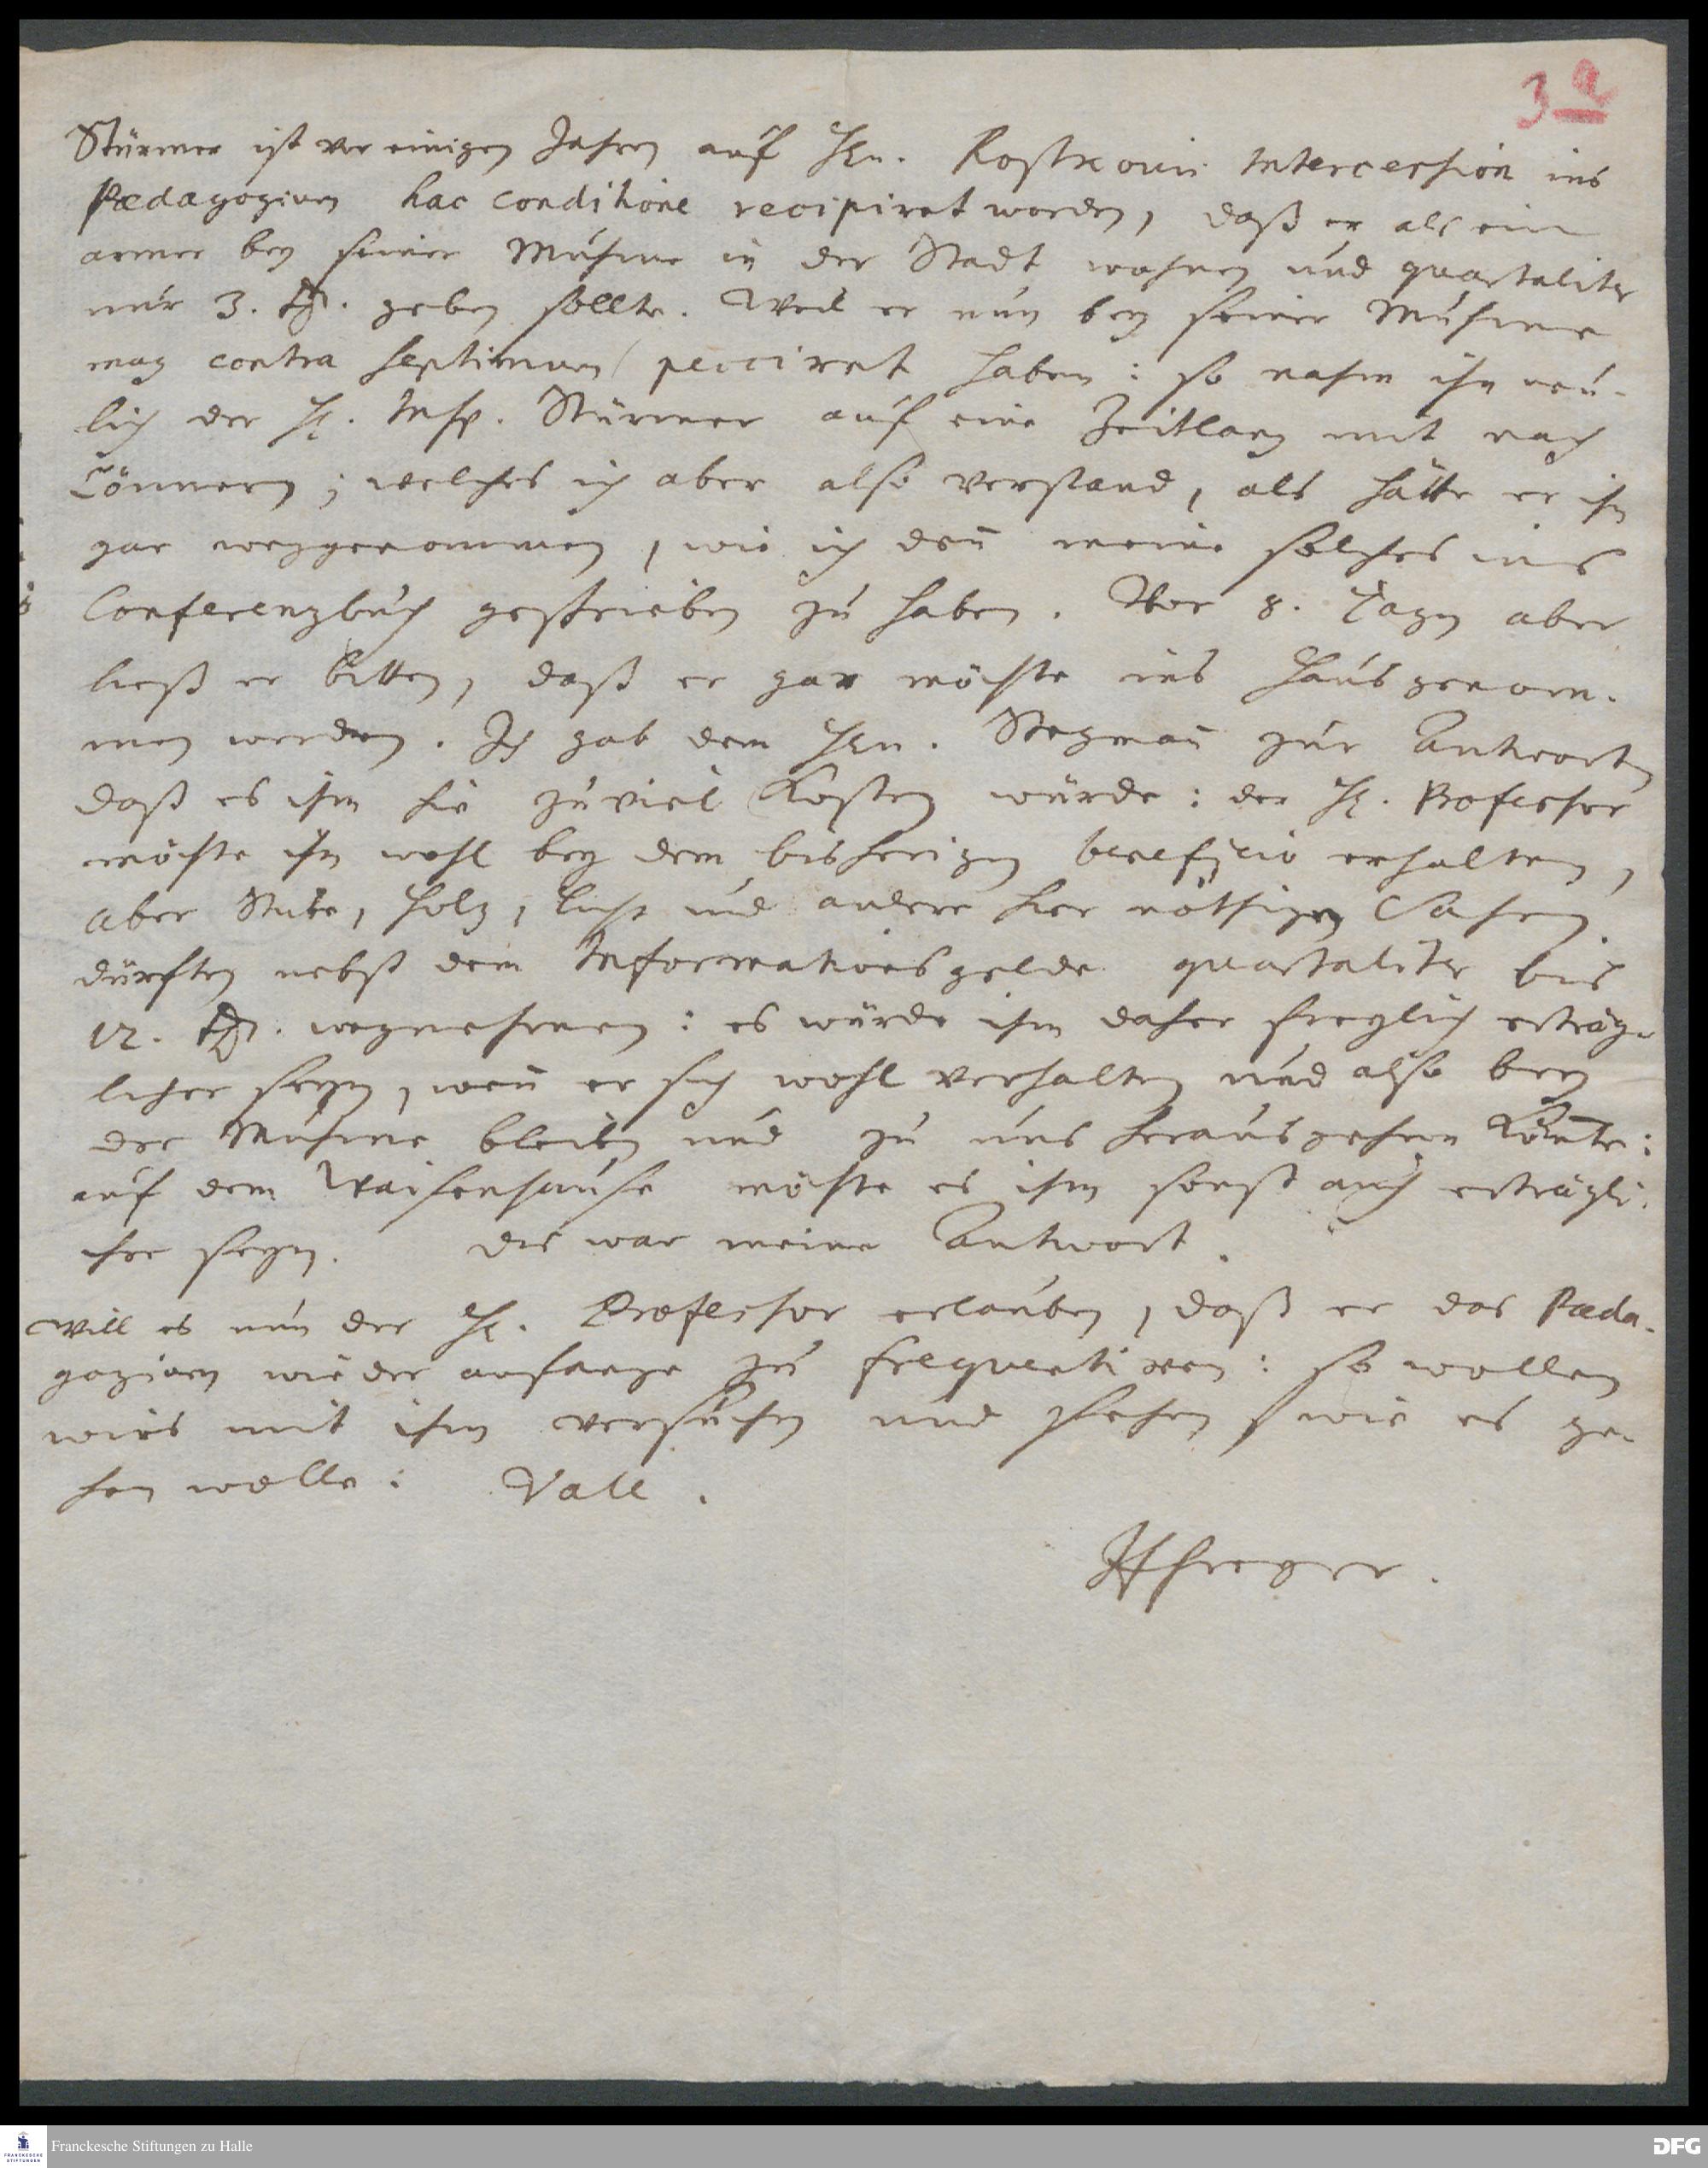 3a
Stürmer ist vor einigen Jahren auf Hln. Rostkovii Intercession ins
Pædagogium hac conditione recipiret worden, daß er als ein
armer bey seiner Muhme in der Stadt wohnen und quartaliter
nur 3. thl. geben sollte. Weil er nun bey seiner Muhme
mag contra septimum pecciret haben: so nahm ihn neu-
lich der Hl. Insp. Stürmer auf eine Zeitlang mit nach
Cönnern; welches ich aber also verstand, als hätte er ihn
gar weggenommen, wie ich den̄ meine solches ins
Conferenzbuch geschrieben zu haben. Vor 8. Tagen aber
ließ er bitten, daß er gar möchte ins Haus genom-
men werden. Ich gab dem Hln. Stegman̄ zur Antwort,
daß es ihm hie zuviel Kosten würde: der Hl. Professor
möchte ihn wohl bey dem bisherigen beneficio erhalten,
aber Stube, Holz, Licht und andere hier nöthigen Sachen
dürften nebst dem Informationsgelde quartaliter bis
12. thl. wegnehmen: es würde ihm daher freylich erträg-
licher seyn, wen̄ er sich wohl verhalten und also bey
der Muhme bleiben und zu uns herausgehen kön̄te:
auf dem Waisenhause möchte es ihm sonst auch erträgli-
cher seyn. Dis war meine Antwort.
Will es nun der Hl. Professor erlauben, daß er das Pæda-
gogium wieder anfange zu frequentiren: so wollen
wirs mit ihm versuchen und sehen, wie es ge-
hen wolle: Vale.
Freyer.
Franckesche Stiftungen zu Halle
FRANCKESCHE STIFTUNGEN
DFG